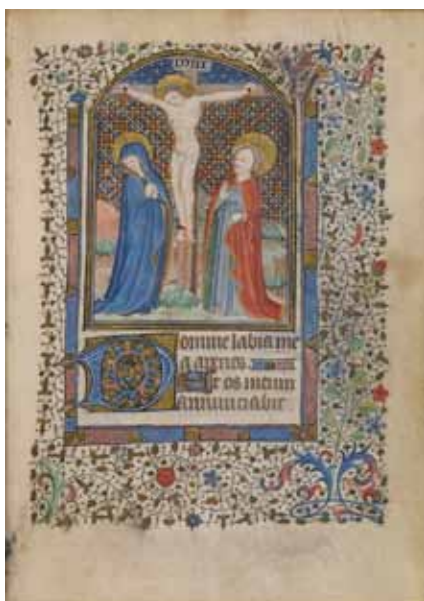 INRI
Domine labia me
a aperies
Et os meum
annunciabit